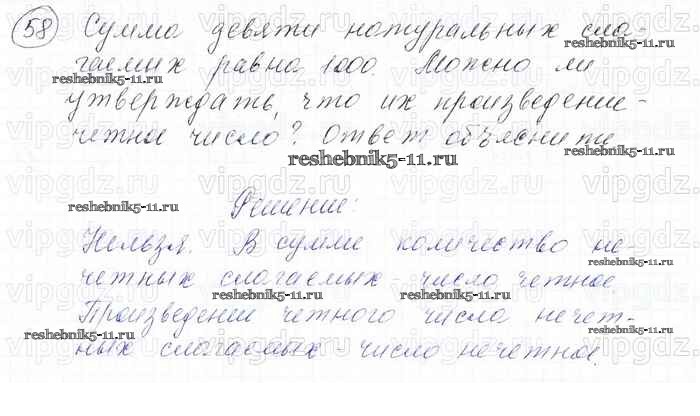 58 Сумма девяти натуральных сла-
гаемых равна 1000. Можно ли
reshebnik5-11.ru reshebnik5-11.ru
утверждать, что их произведение -
четное число? Ответ объясните
reshebnik5-11.ru
reshebnik5-11.ru
Решение:
Нельзя. В сумме количество не-
четных слагаемых - число четное
reshebnik5-11.ru reshebnik5-11.ru
Произведение четного числа нечет-
reshebnik5-11.ru reshebnik5-11.ru
ных слагаемых - число нечетное.